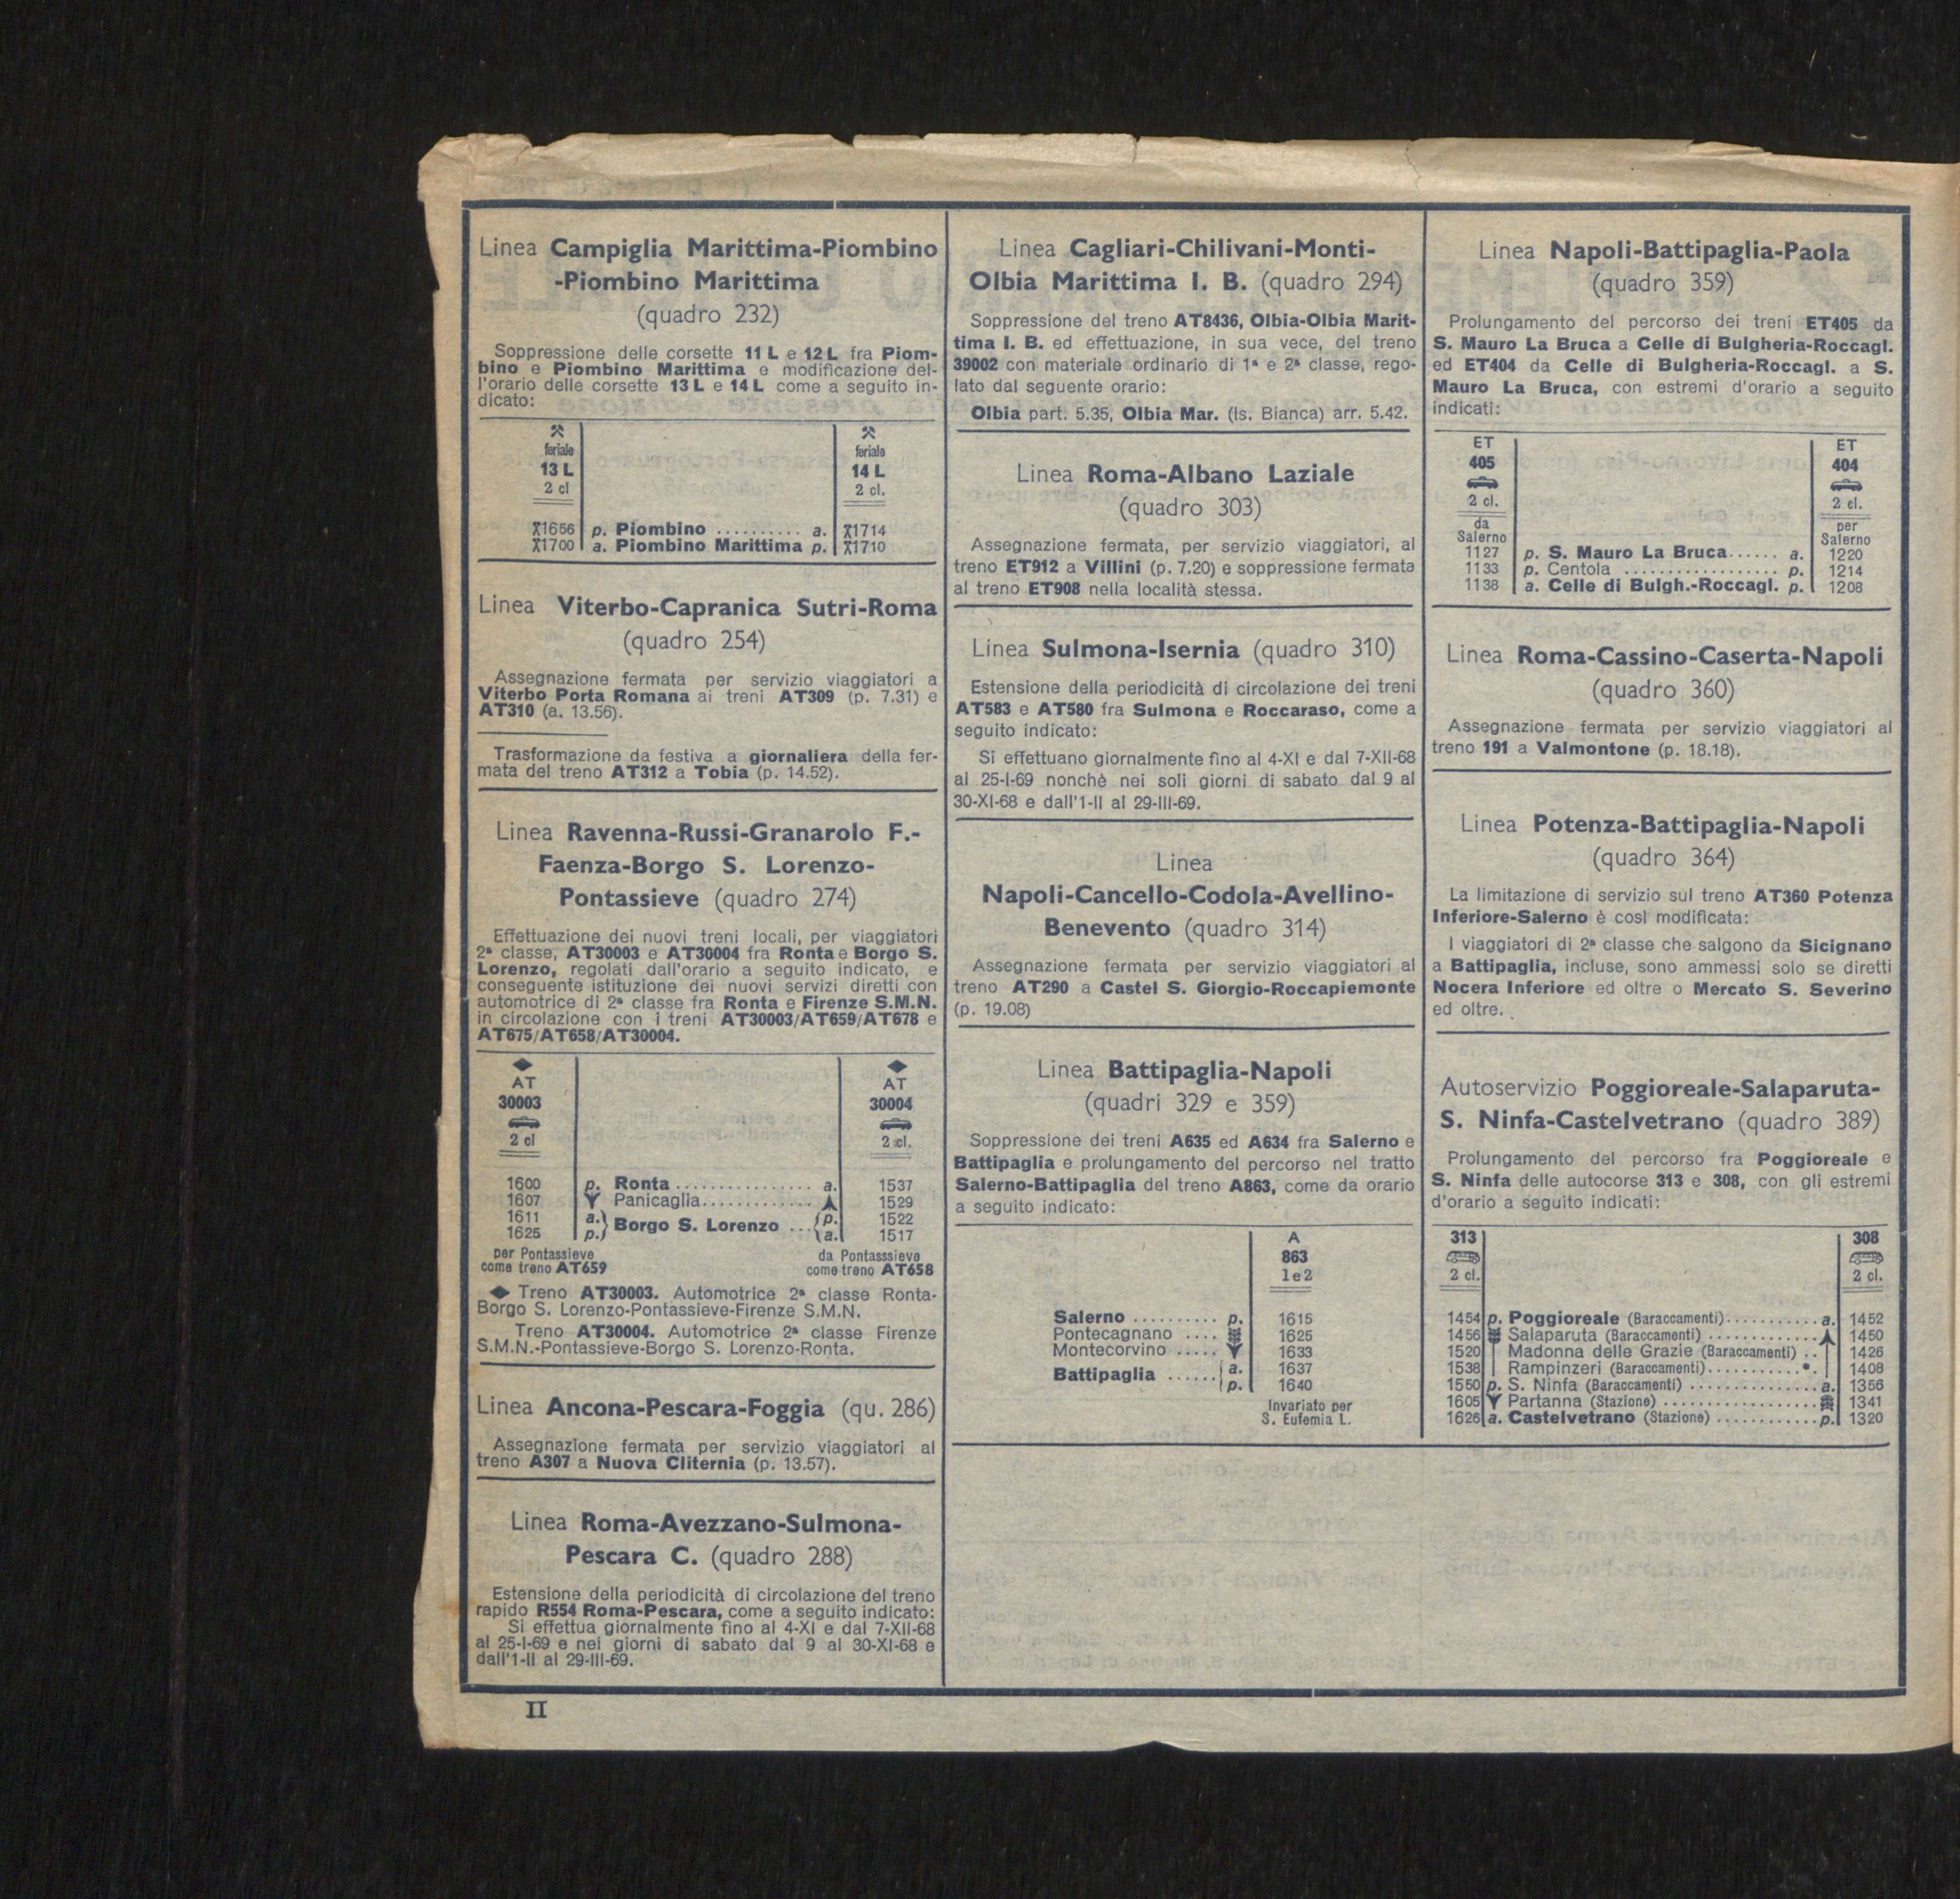 Linea Campiglia Marittima-Piombino
-Piombino Marittima
(quadro 232)
Soppressione delle corsette 11 L e 12 L fra Piom-
bino e Piombino Marittima e modificazione del-
l'orario delle corsette 13 L e 14 L come a seguito in-
dicato:
feriale feriale
13 L 14 L
2 cl 2 cl.
1656 p. Piombino .......... a. 1714
1700 a. Piombino Marittima p. 1710
Linea Viterbo-Capranica Sutri-Roma
(quadro 254)
Assegnazione fermata per servizio viaggiatori a
Viterbo Porta Romana ai treni AT309 (p. 7.31) e
AT310 (a. 13.56).
Trasformazione da festiva a giornaliera della fer-
mata del treno AT312 a Tobia (p. 14.52).
Linea Ravenna-Russi-Granarolo F.-
Faenza-Borgo S. Lorenzo-
Pontassieve (quadro 274)
Effettuazione dei nuovi treni locali, per viaggiatori
2ª classe, AT30003 e AT30004 fra Ronta e Borgo S.
Lorenzo, regolati dall'orario a seguito indicato, e
conseguente istituzione dei nuovi servizi diretti con
automotrice di 2ª classe fra Ronta e Firenze S.M.N.
in circolazione con i treni AT30003/AT659/AT678 e
AT675/AT658/AT30004.
◆ ◆
AT AT
30003 30004
2 cl 2 cl.
1600 p. Ronta ................ a. 1537
1607 Panicaglia............. 1529
1611 a. Borgo S. Lorenzo ... p. 1522
1625 p. a. 1517
per Pontassieve da Pontasssieve
come treno AT659 come treno AT658
◆ Treno AT30003. Automotrice 2ª classe Ronta-
Borgo S. Lorenzo-Pontassieve-Firenze S.M.N.
Treno AT30004. Automotrice 2ª classe Firenze
S.M.N.-Pontassieve-Borgo S. Lorenzo-Ronta.
Linea Ancona-Pescara-Foggia (qu. 286)
Assegnazione fermata per servizio viaggiatori al
treno A307 a Nuova Cliternia (p. 13.57).
Linea Roma-Avezzano-Sulmona-
Pescara C. (quadro 288)
Estensione della periodicità di circolazione del treno
rapido R554 Roma-Pescara, come a seguito indicato:
Si effettua giornalmente fino al 4-XI e dal 7-XII-68
al 25-I-69 e nei giorni di sabato dal 9 al 30-XI-68 e
dall'1-II al 29-III-69.
Linea Cagliari-Chilivani-Monti-
Olbia Marittima I. B. (quadro 294)
Soppressione del treno AT8436, Olbia-Olbia Marit-
tima I. B. ed effettuazione, in sua vece, del treno
39002 con materiale ordinario di 1ª e 2ª classe, rego-
lato dal seguente orario:
Olbia part. 5.35, Olbia Mar. (Is. Bianca) arr. 5.42.
Linea Roma-Albano Laziale
(quadro 303)
Assegnazione fermata, per servizio viaggiatori, al
treno ET912 a Villini (p. 7.20) e soppressione fermata
al treno ET908 nella località stessa.
Linea Sulmona-Isernia (quadro 310)
Estensione della periodicità di circolazione dei treni
AT583 e AT580 fra Sulmona e Roccaraso, come a
seguito indicato:
Si effettuano giornalmente fino al 4-XI e dal 7-XII-68
al 25-I-69 nonchè nei soli giorni di sabato dal 9 al
30-XI-68 e dall'1-II al 29-III-69.
Linea
Napoli-Cancello-Codola-Avellino-
Benevento (quadro 314)
Assegnazione fermata per servizio viaggiatori al
treno AT290 a Castel S. Giorgio-Roccapiemonte
(p. 19.08)
Linea Battipaglia-Napoli
(quadri 329 e 359)
Soppressione dei treni A635 ed A634 fra Salerno e
Battipaglia e prolungamento del percorso nel tratto
Salerno-Battipaglia del treno A863, come da orario
a seguito indicato:
A
863
1e2
Salerno .......... p. 1615
Pontecagnano .... 1625
Montecorvino ..... 1633
Battipaglia ...... a. 1637
p. 1640
Invariato per
S. Eufemia L.
Linea Napoli-Battipaglia-Paola
(quadro 359)
Prolungamento del percorso dei treni ET405 da
S. Mauro La Bruca a Celle di Bulgheria-Roccagl.
ed ET404 da Celle di Bulgheria-Roccagl. a S.
Mauro La Bruca, con estremi d'orario a seguito
indicati:
ET ET
405 404
2 cl. 2 cl.
da per
Salerno Salerno
1127 p. S. Mauro La Bruca...... a. 1220
1133 p. Centola .................. p. 1214
1138 a. Celle di Bulgh.-Roccagl. p. 1208
Linea Roma-Cassino-Caserta-Napoli
(quadro 360)
Assegnazione fermata per servizio viaggiatori al
treno 191 a Valmontone (p. 18.18).
Linea Potenza-Battipaglia-Napoli
(quadro 364)
La limitazione di servizio sul treno AT360 Potenza
Inferiore-Salerno è così modificata:
I viaggiatori di 2ª classe che salgono da Sicignano
a Battipaglia, incluse, sono ammessi solo se diretti
Nocera Inferiore ed oltre o Mercato S. Severino
ed oltre.
Autoservizio Poggioreale-Salaparuta-
S. Ninfa-Castelvetrano (quadro 389)
Prolungamento del percorso fra Poggioreale e
S. Ninfa delle autocorse 313 e 308, con gli estremi
d'orario a seguito indicati:
313 308
2 cl. 2 cl.
1454 p. Poggioreale (Baraccamenti)........... a. 1452
1456 Salaparuta (Baraccamenti) ............. 1450
1520 Madonna delle Grazie (Baraccamenti) .. 1426
1538 Rampinzeri (Baraccamenti)........... 1408
1550 p. S. Ninfa (Baraccamenti) ............... a. 1356
1605 Partanna (Stazione) .................. 1341
1626 a. Castelvetrano (Stazione) ............ p. 1320
II